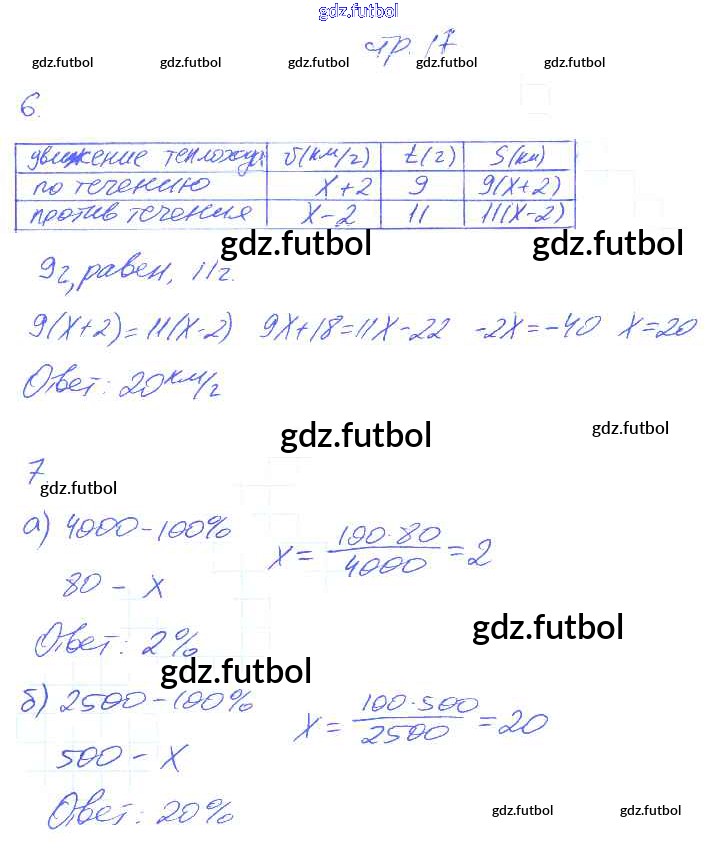 gdz.futbol
стр. 17
gdz.futbol gdz.futbol gdz.futbol gdz.futbol gdz.futbol
6.
движение теплохода v(км/г) t(г) S(км)
по течению x+2 9 9(x+2)
против течения x-2 11 11(x-2)
gdz.futbol gdz.futbol
9г, равен, 11г.
9(x+2)=11(x-2) 9x+18=11x-22 -2x=-40 x=20
Ответ: 20 км/г
gdz.futbol gdz.futbol
7
gdz.futbol
а) 4000-100% x= 100·80/4000 =2
80 - x
gdz.futbol
Ответ: 2%
gdz.futbol
б) 2500-100% x= 100·500/2500 =20
500 - x
Ответ: 20%
gdz.futbol gdz.futbol